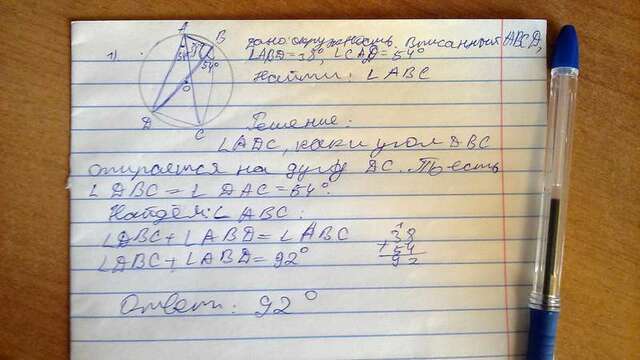 1)
A
B
38°
54°
54°
O
D
C
Дано: окружность. Вписанный ABCD,
∠ABD = 38°, ∠CAD = 54°
Найти: ∠ABC
Решение:
∠ADC, как и угол DBC
опирается на дугу DC. То есть
∠DBC = ∠DAC = 54°.
Найдём: ∠ABC:
∠DBC + ∠ABD = ∠ABC
∠DBC + ∠ABD = 92°
1
38
+ 54
92
Ответ: 92°